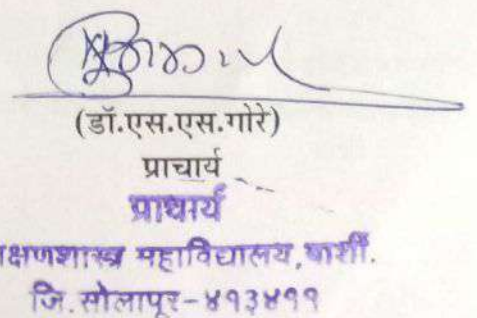 (डॉ.एस.एस.गोरे)
प्राचार्य
प्राचार्य
क्षणशास्त्र महाविद्यालय,बार्शी.
जि.सोलापूर-४१३४११